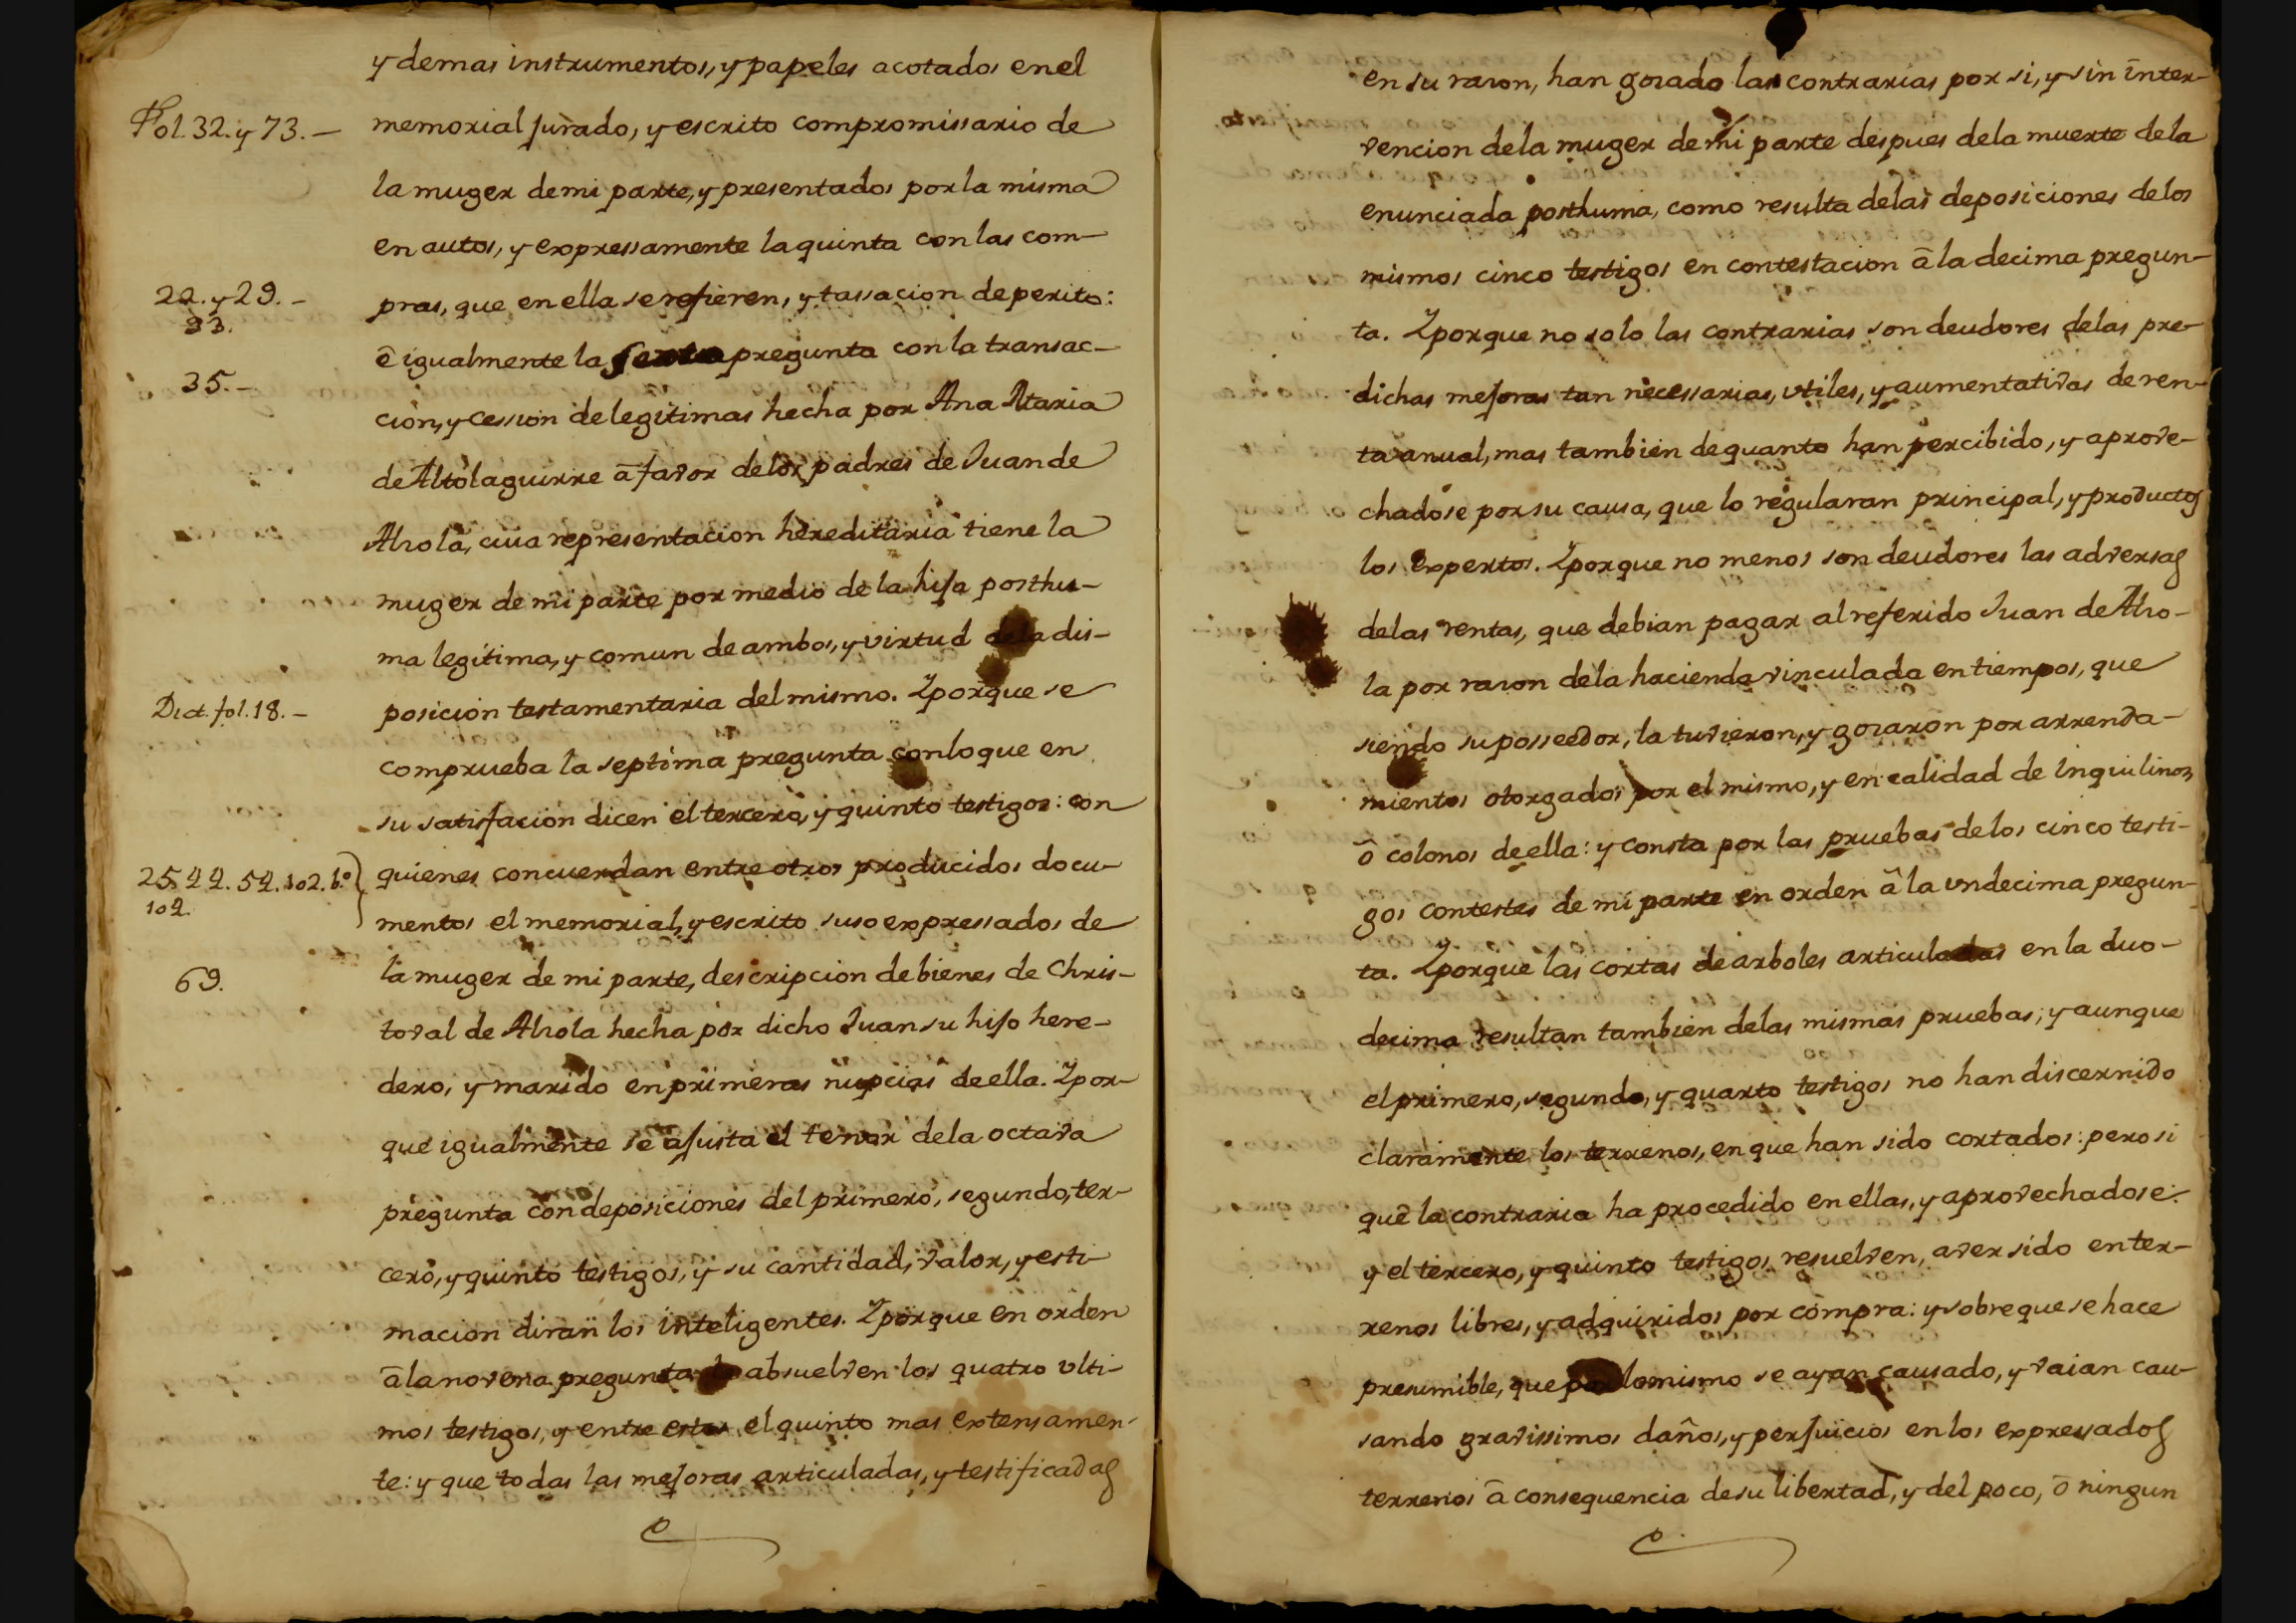 y demas instrumentos, y papeles acotados en el
Fol. 32. y 73. –
memorial jurado, y escrito compromissario de
la muger de mi parte, y presentados por la misma
en autos, y expressamente la quinta con las com–
22. y 29. –
33.
pras, que en ella se refieren, y tassacion de perito:
ê igualmente la sexta pregunta con la transac–
35. –
cion, y cession de legitimas hecha por Ana Maria
de Altolaguirre â favor de los padres de Juan de
Alzola, cuia representacion hereditaria tiene la
muger de mi parte por medio de la hija posthu–
ma legitima, y comun de ambos, y virtud de la dis–
Dict. fol. 18. –
posicion testamentaria del mismo. Y porque se
comprueba la septima pregunta con lo que en
su satisfacion dicen el tercero, y quinto testigos: con
25. 44. 54. 102. b.º
104.
quienes concuerdan entre otros producidos docu–
mentos el memorial, y escrito suso expressados de
69.
la muger de mi parte, descripcion de bienes de Chris–
toval de Alzola hecha por dicho Juan su hijo here–
dero, y marido en primeras nupcias de ella. Y por–
que igualmente se ajusta el tenor de la octava
pregunta con deposiciones del primero, segundo, ter–
cero, y quinto testigos, y su cantidad, valor, y esti–
macion diran los inteligentes. Y porque en orden
â la novena pregunta la absuelven los quatro ulti–
mos testigos, y entre estos el quinto mas extensamen–
te: y que todas las mejoras articuladas, y testificadas
en su razon, han gozado las contrarias por si, y sin inter–
vencion de la muger de mi parte despues de la muerte de la
enunciada posthuma, como resulta de las deposiciones de los
mismos cinco testigos en contestacion â la decima pregun–
ta. Y porque no solo las contrarias son deudores de las pre–
dichas mejoras tan necessarias, vtiles, y aumentativas de ren–
ta anual, mas tambien de quanto han percibido, y aprove–
chadose por su causa, que lo regularan principal, y productos
los expertos. Y porque no menos son deudores las adversas
de las rentas, que debian pagar al referido Juan de Alzo–
la por razon de la hacienda vinculada en tiempos, que
siendo su posseedor, la tuvieron, y gozaron por arrenda–
mientos otorgados por el mismo, y en calidad de Inquilinos,
ô colonos de ella: y consta por las pruebas de los cinco testi–
gos contestes de mi parte en orden â la vndecima pregun–
ta. Y porque las cortas de arboles articuladas en la duo–
decima resultan tambien de las mismas pruebas; y aunque
el primero, segundo, y quarto testigos no han discernido
claramente los terrenos, en que han sido cortados: pero si
que la contraria ha procedido en ellas, y aprovechadose:
y el tercero, y quinto testigos resuelven, aver sido en ter–
renos libres, y adquiridos por compra: y sobre que se hace
presumible, que por lo mismo se ayan causado, y vaian cau–
sando gravissimos daños, y perjuicios en los expressados
terrenos â consequencia de su libertad, y del poco, ô ningun